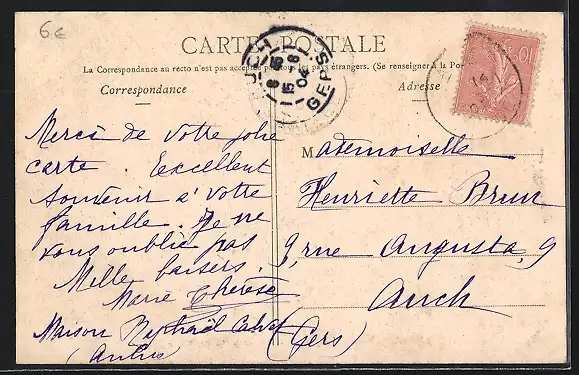 6€
CARTE POSTALE
La Correspondance au recto n'est pas acceptée par tous les pays étrangers. (Se renseigner à la Pos
Correspondance
Adresse
AUCH
6 45
15 -8
04
GERS
10
Merci de votre jolie
carte. Excellent
souvenir à votre
famille. Je ne
vous oublie pas
Mille baisers.
Marie Thérèse
Maison Raphaël Calvet
Mademoiselle
Henriette Brun
9, rue Augusta, 9
Auch
(Gers)